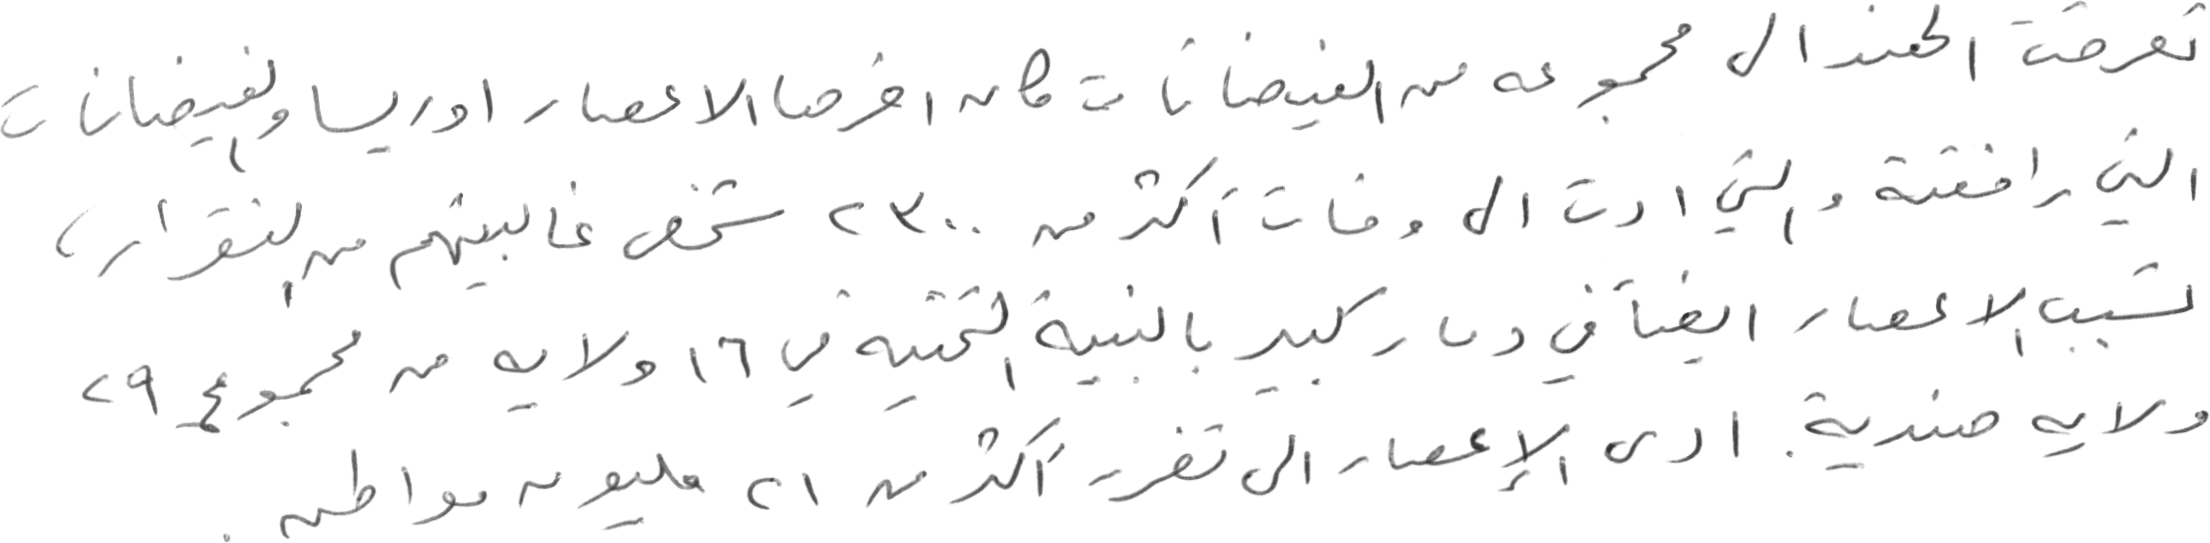 تعرضت الهند الى مجموعه من الفيضانات كان اخرها الاعصار اوريسا والفيضانات
التي رافقته والتي ادت الى وفات أكثر من ٢٣٠٠ شخص غالبيتهم من الفقراء،
تسبب الاعصار ايضاً في دمار كبير بالبنية التحتيه في ١٦ ولايه من مجموع ٢٩
ولايه هندية. ادى الإعصار الى تضرر أكثر من ٢١ مليون مواطن.